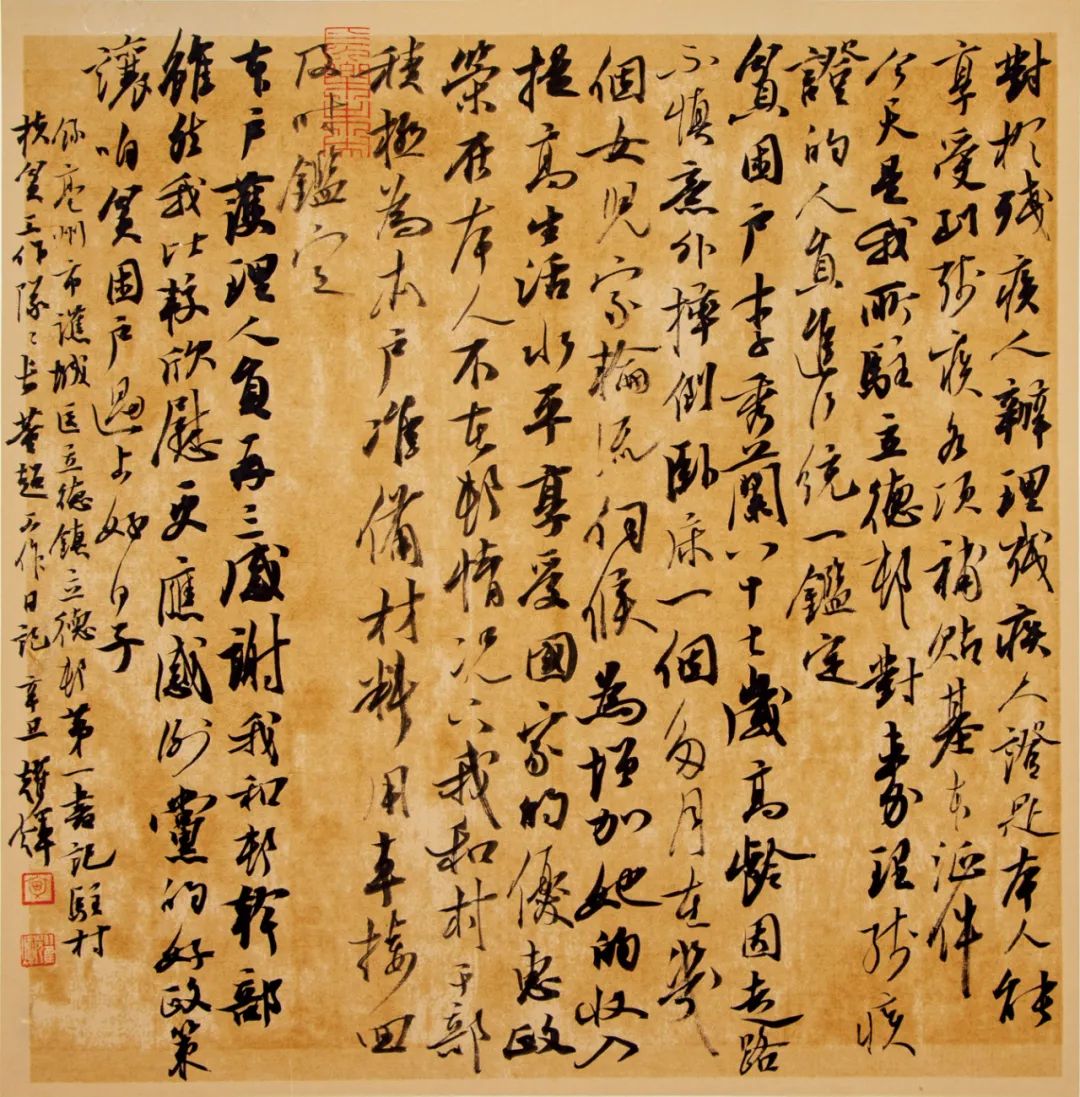 對於殘疾人辦理殘疾人證是本人能
享受到殘疾各項補貼基本證件
今天是我所駐立德邨對未辦理殘疾
證的人員進行統一鑑定
貧困戶李秀蘭八十七歲高齡因走路
不慎意外摔倒臥床一個多月在幾
個女兒家輪流伺候為增加她的收入
提高生活水平享受國家的優惠政
策在本人不在邨情况下我和村干部
積極為本戶准備材料用車接回
及時鑑定
本戶護理人員再三感謝我和邨幹部
雖然我比較欣慰更應感謝黨的好政策
讓咱貧困戶過上好日子
錄亳州市譙城區立德鎮立德邨第一書記駐村
扶貧工作隊隊長董超工作日記辛丑